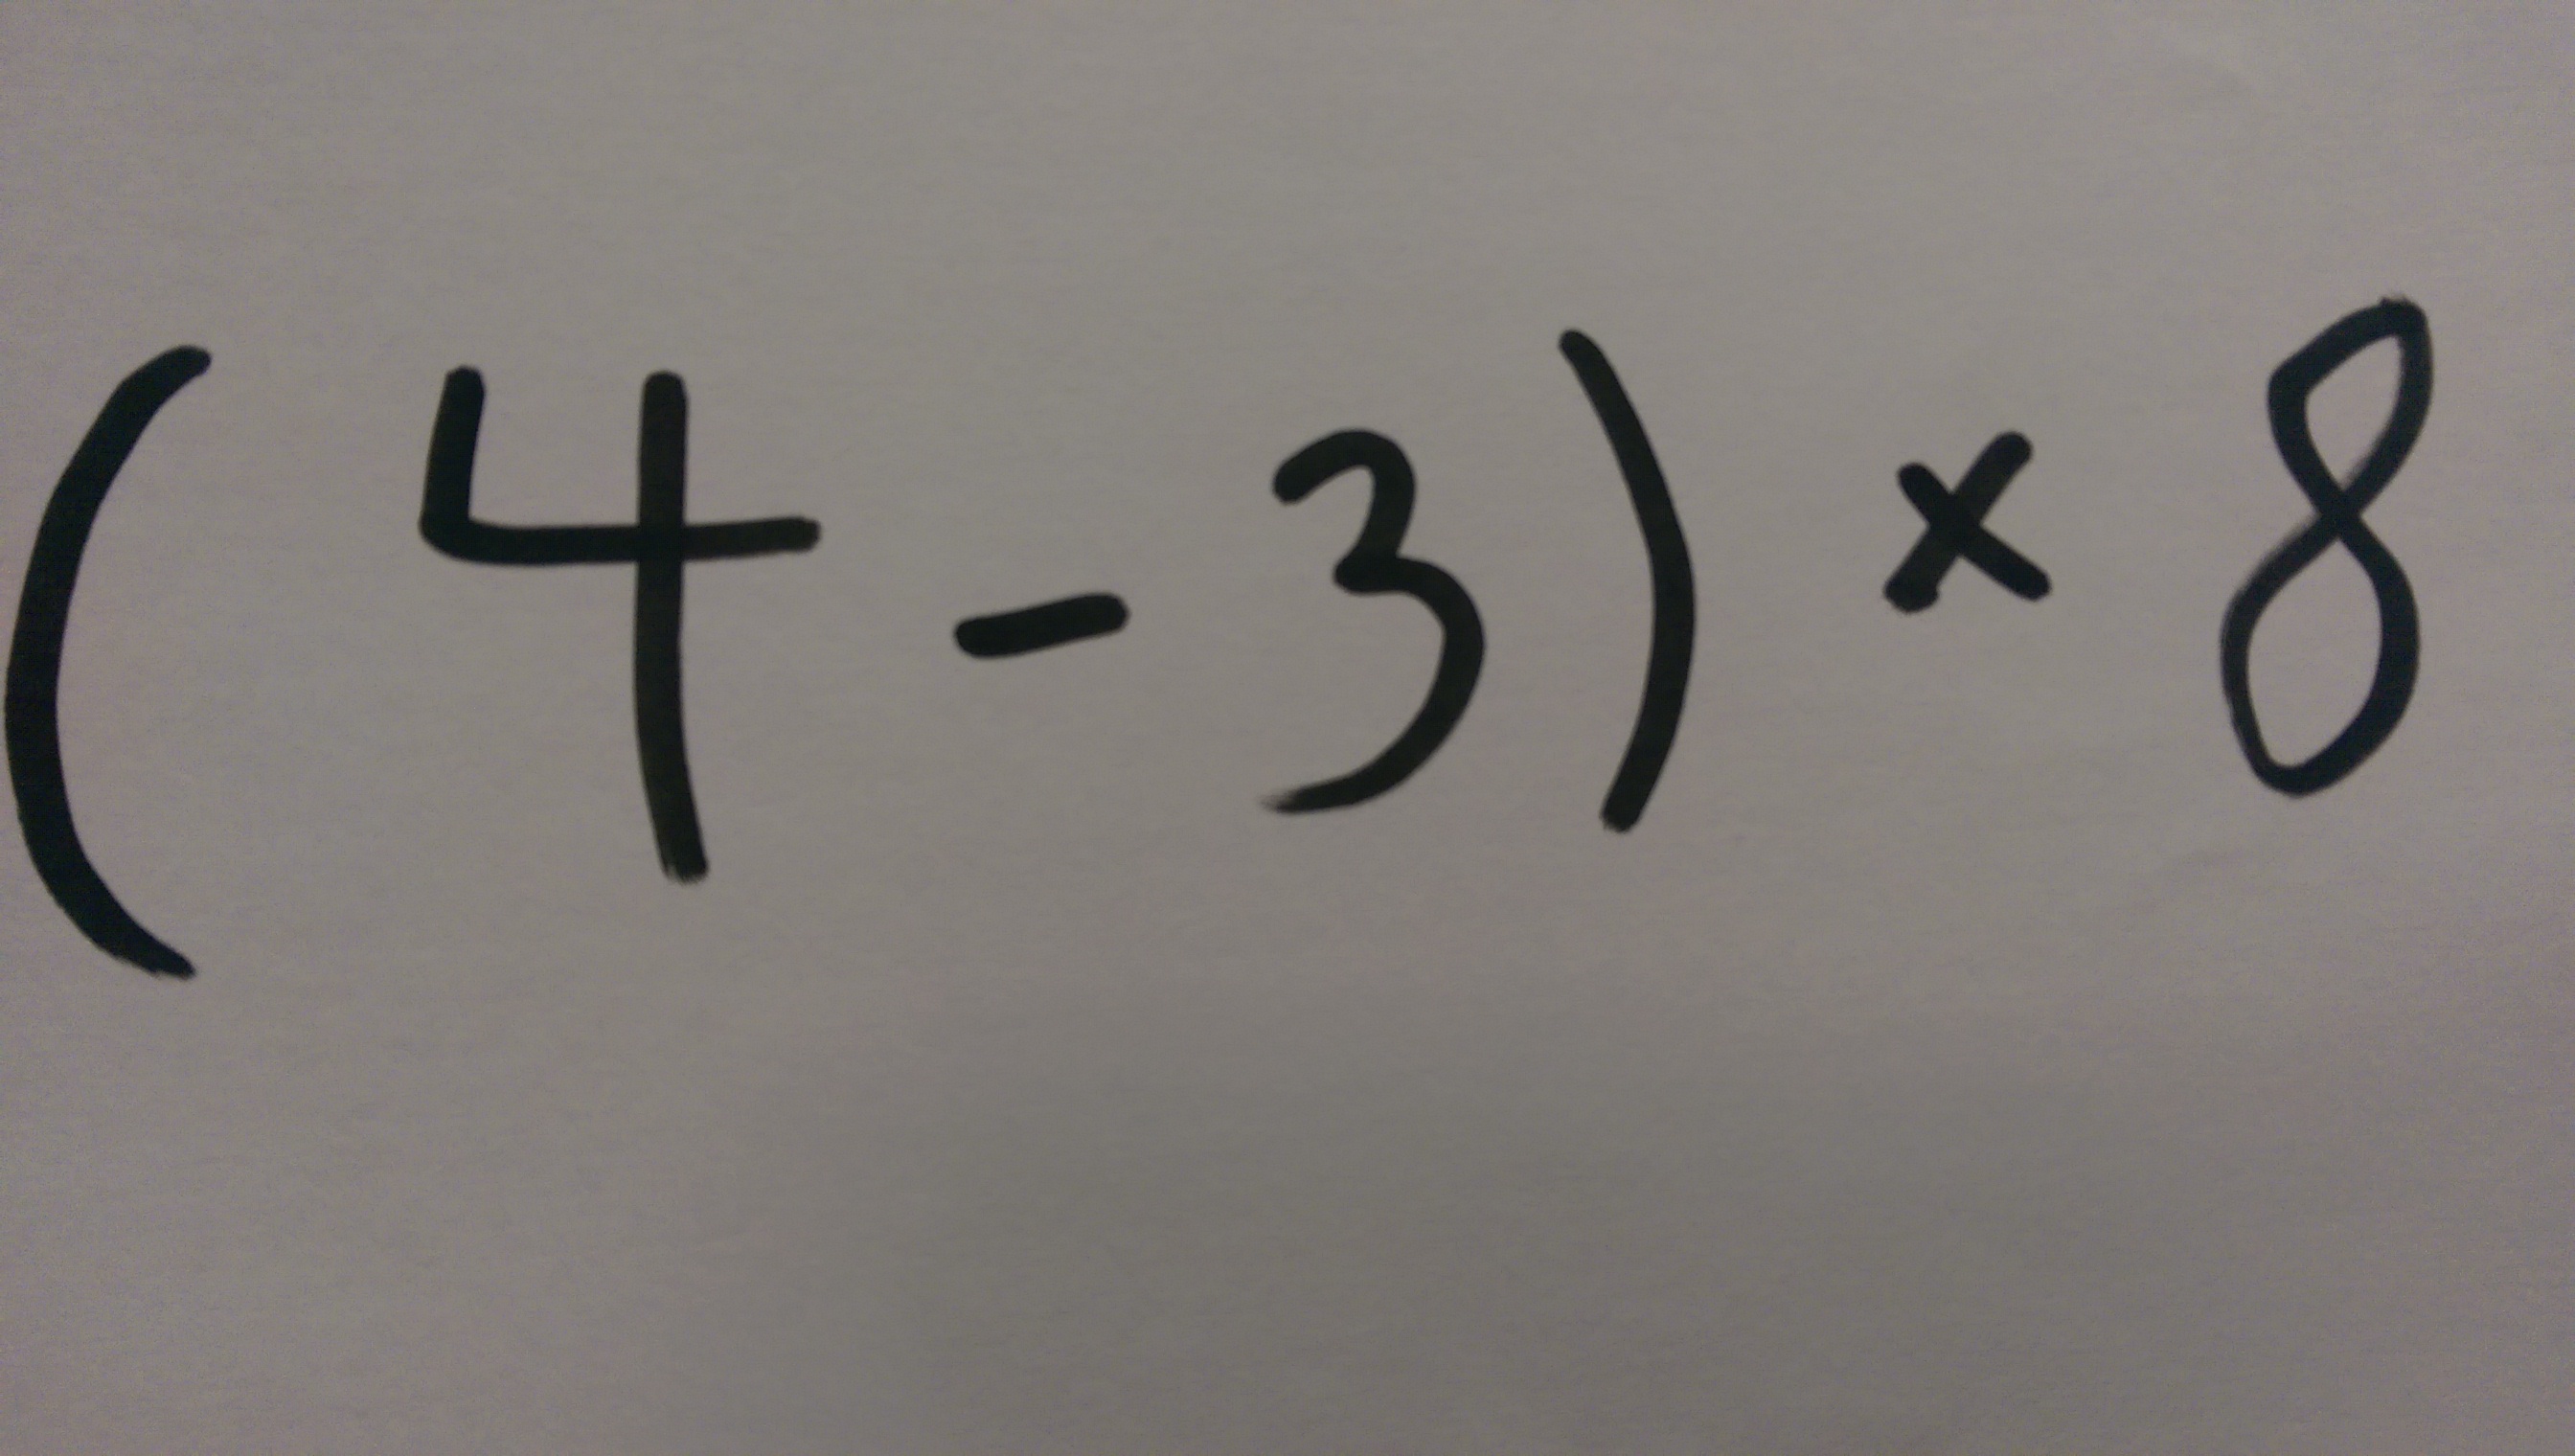 (4-3)×8